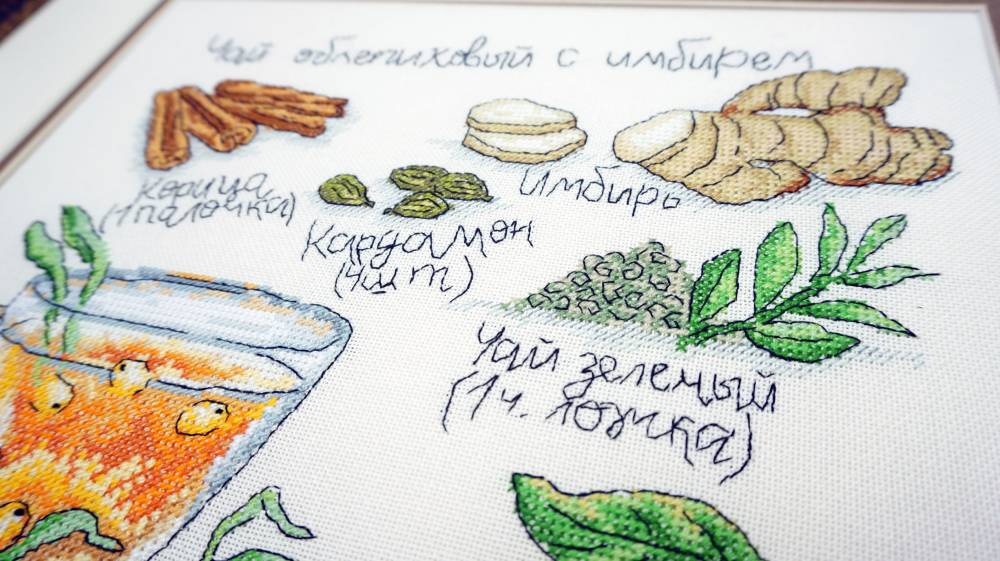 Чай облепиховый с имбирем
Корица
(1 палочка)
Кардамон
(4 шт)
Имбирь
Чай зеленый
(1 ч. ложка)